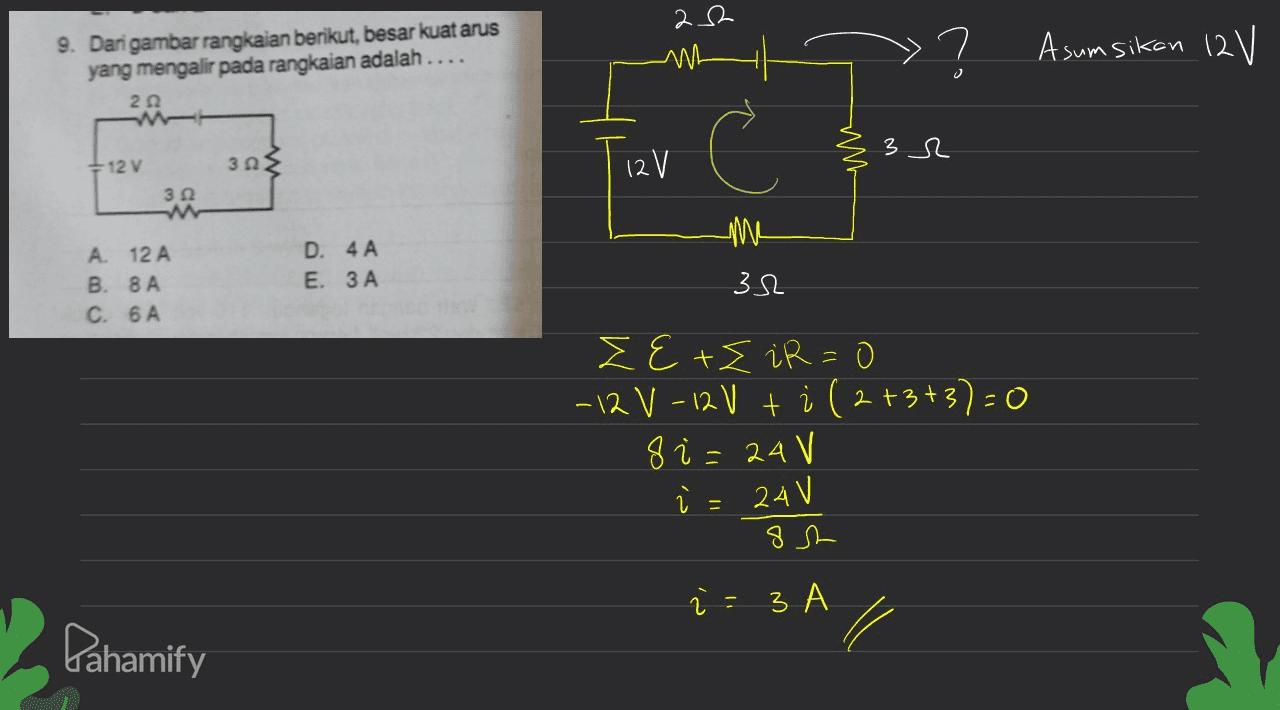 9. Dari gambar rangkaian berikut, besar kuat arus
yang mengalir pada rangkaian adalah ....
2 Ω
12 V
3 Ω
3 Ω
A. 12 A
B. 8 A
C. 6 A
D. 4 A
E. 3 A
2 Ω
? Asumsikan 12 V
12 V
3 Ω
3 Ω
Σ ℰ + Σ iR = 0
-12 V - 12 V + i (2+3+3) = 0
8 i = 24 V
i = 24 V
8 Ω
i = 3 A
Pahamify